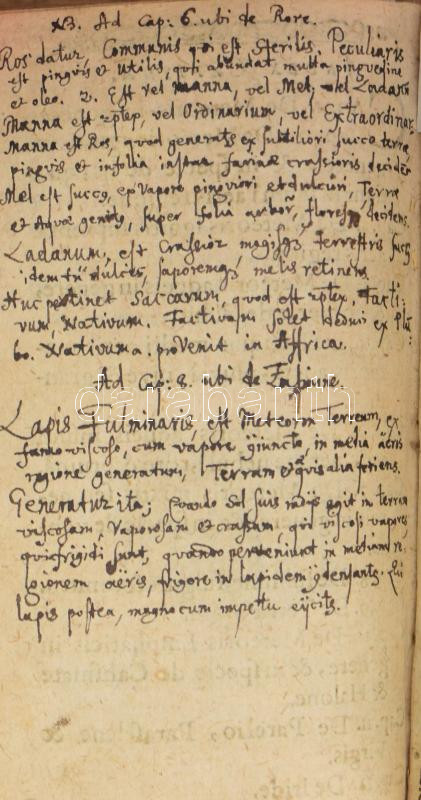 NB. Ad Cap: 6. ubi de Rore.
Ros datur, Communis qui est sterilis. Peculiaris
est pinguis et utilis, qui abundat multa pinguedine
et oleo. 2. Est vel manna, vel Mel, vel Ladanū
Manna est duplex, vel Ordinarium, vel Extraordinar:
Manna est Ros, quod generatur ex subtiliori succo terræ,
pinguis et in folia instar farinæ crassioris decidens
Mel est succus, ex vapore pinguiori et dulciori, Terræ
et Aquæ genitus, super folia arborū, floresque decidens.
Ladanum, est Crassior magisque terrestris succus
idem tn̄ dulces, saporemque mellis retinens.
Huc pertinet Saccarum, quod est duplex. Facti:
vum, Nativum. Factivum solet deduci ex Plū
bo. Nativum a. provenit in Affrica.
Ad Cap: 8. ubi de
Lapis Fulminaris est Meteorm Terreum, ex
fumo viscoso, cum vapore cjuncto, in media aëris
regione generatum, Terram et quis alia feriens.
Generatur ita; Quando Sol suis radijs egit in terram
viscosam, vaporosam et crassam, qui viscosi vapores
quia frigidi sunt, quando perveniunt in mediam re,
gionem aëris, frigore in lapidem cdensantr. Qui
lapis postea, magno cum impetu ejicitr.
darabanth